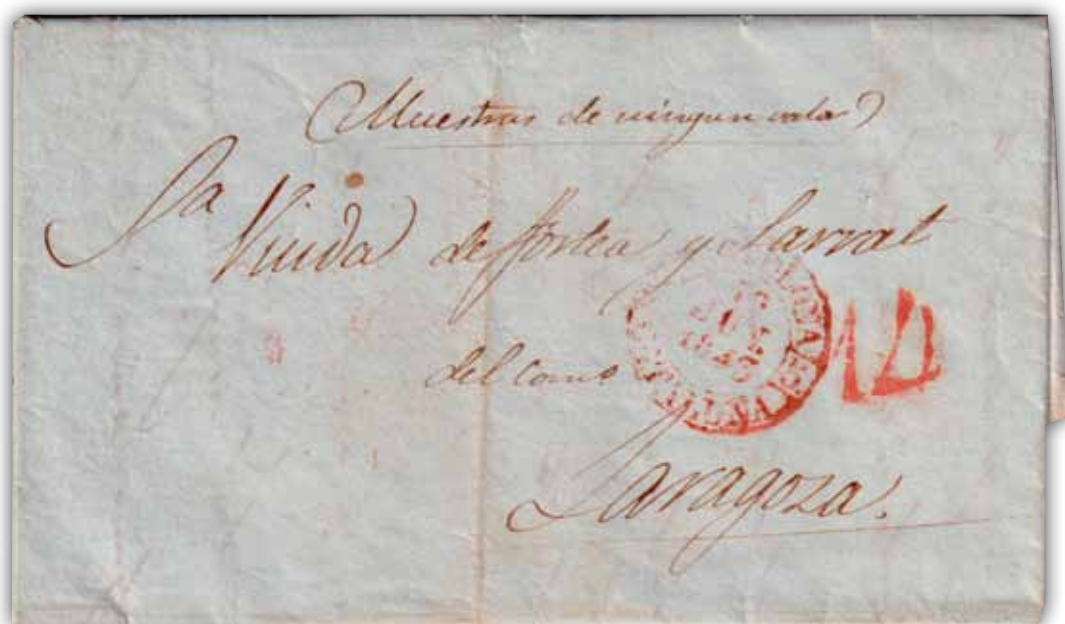 (Muestras de ningun valor)
Sa
Viuda de Fortea y Larraz
del com°
14
Zaragoza.